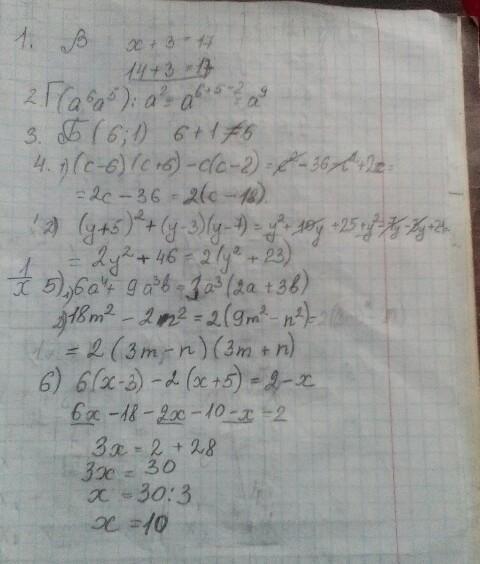 1. В x + 3 = 17
14 + 3 = 17
2 Г (a⁶a⁵) : a² = a⁶⁺⁵⁻² = a⁹
3. Б (6; 1) 6 + 1 ≠ 6
4. 1) (c-6)(c+6) - c(c-2) = c² - 36 - c² + 2c =
= 2c - 36 = 2(c - 18)
2) (y+5)² + (y-3)(y-7) = y² + 10y + 25 + y² - 7y - 3y + 21 =
= 2y² + 46 = 2(y² + 23)
1/x 5) 1) 6a⁴ + 9a³b = 3a³(2a + 3b)
2) 18m² - 2n² = 2(9m² - n²) =
= 2(3m - n)(3m + n)
6) 6(x-3) - 2(x+5) = 2 - x
6x - 18 - 2x - 10 - x = 2
3x = 2 + 28
3x = 30
x = 30 : 3
x = 10